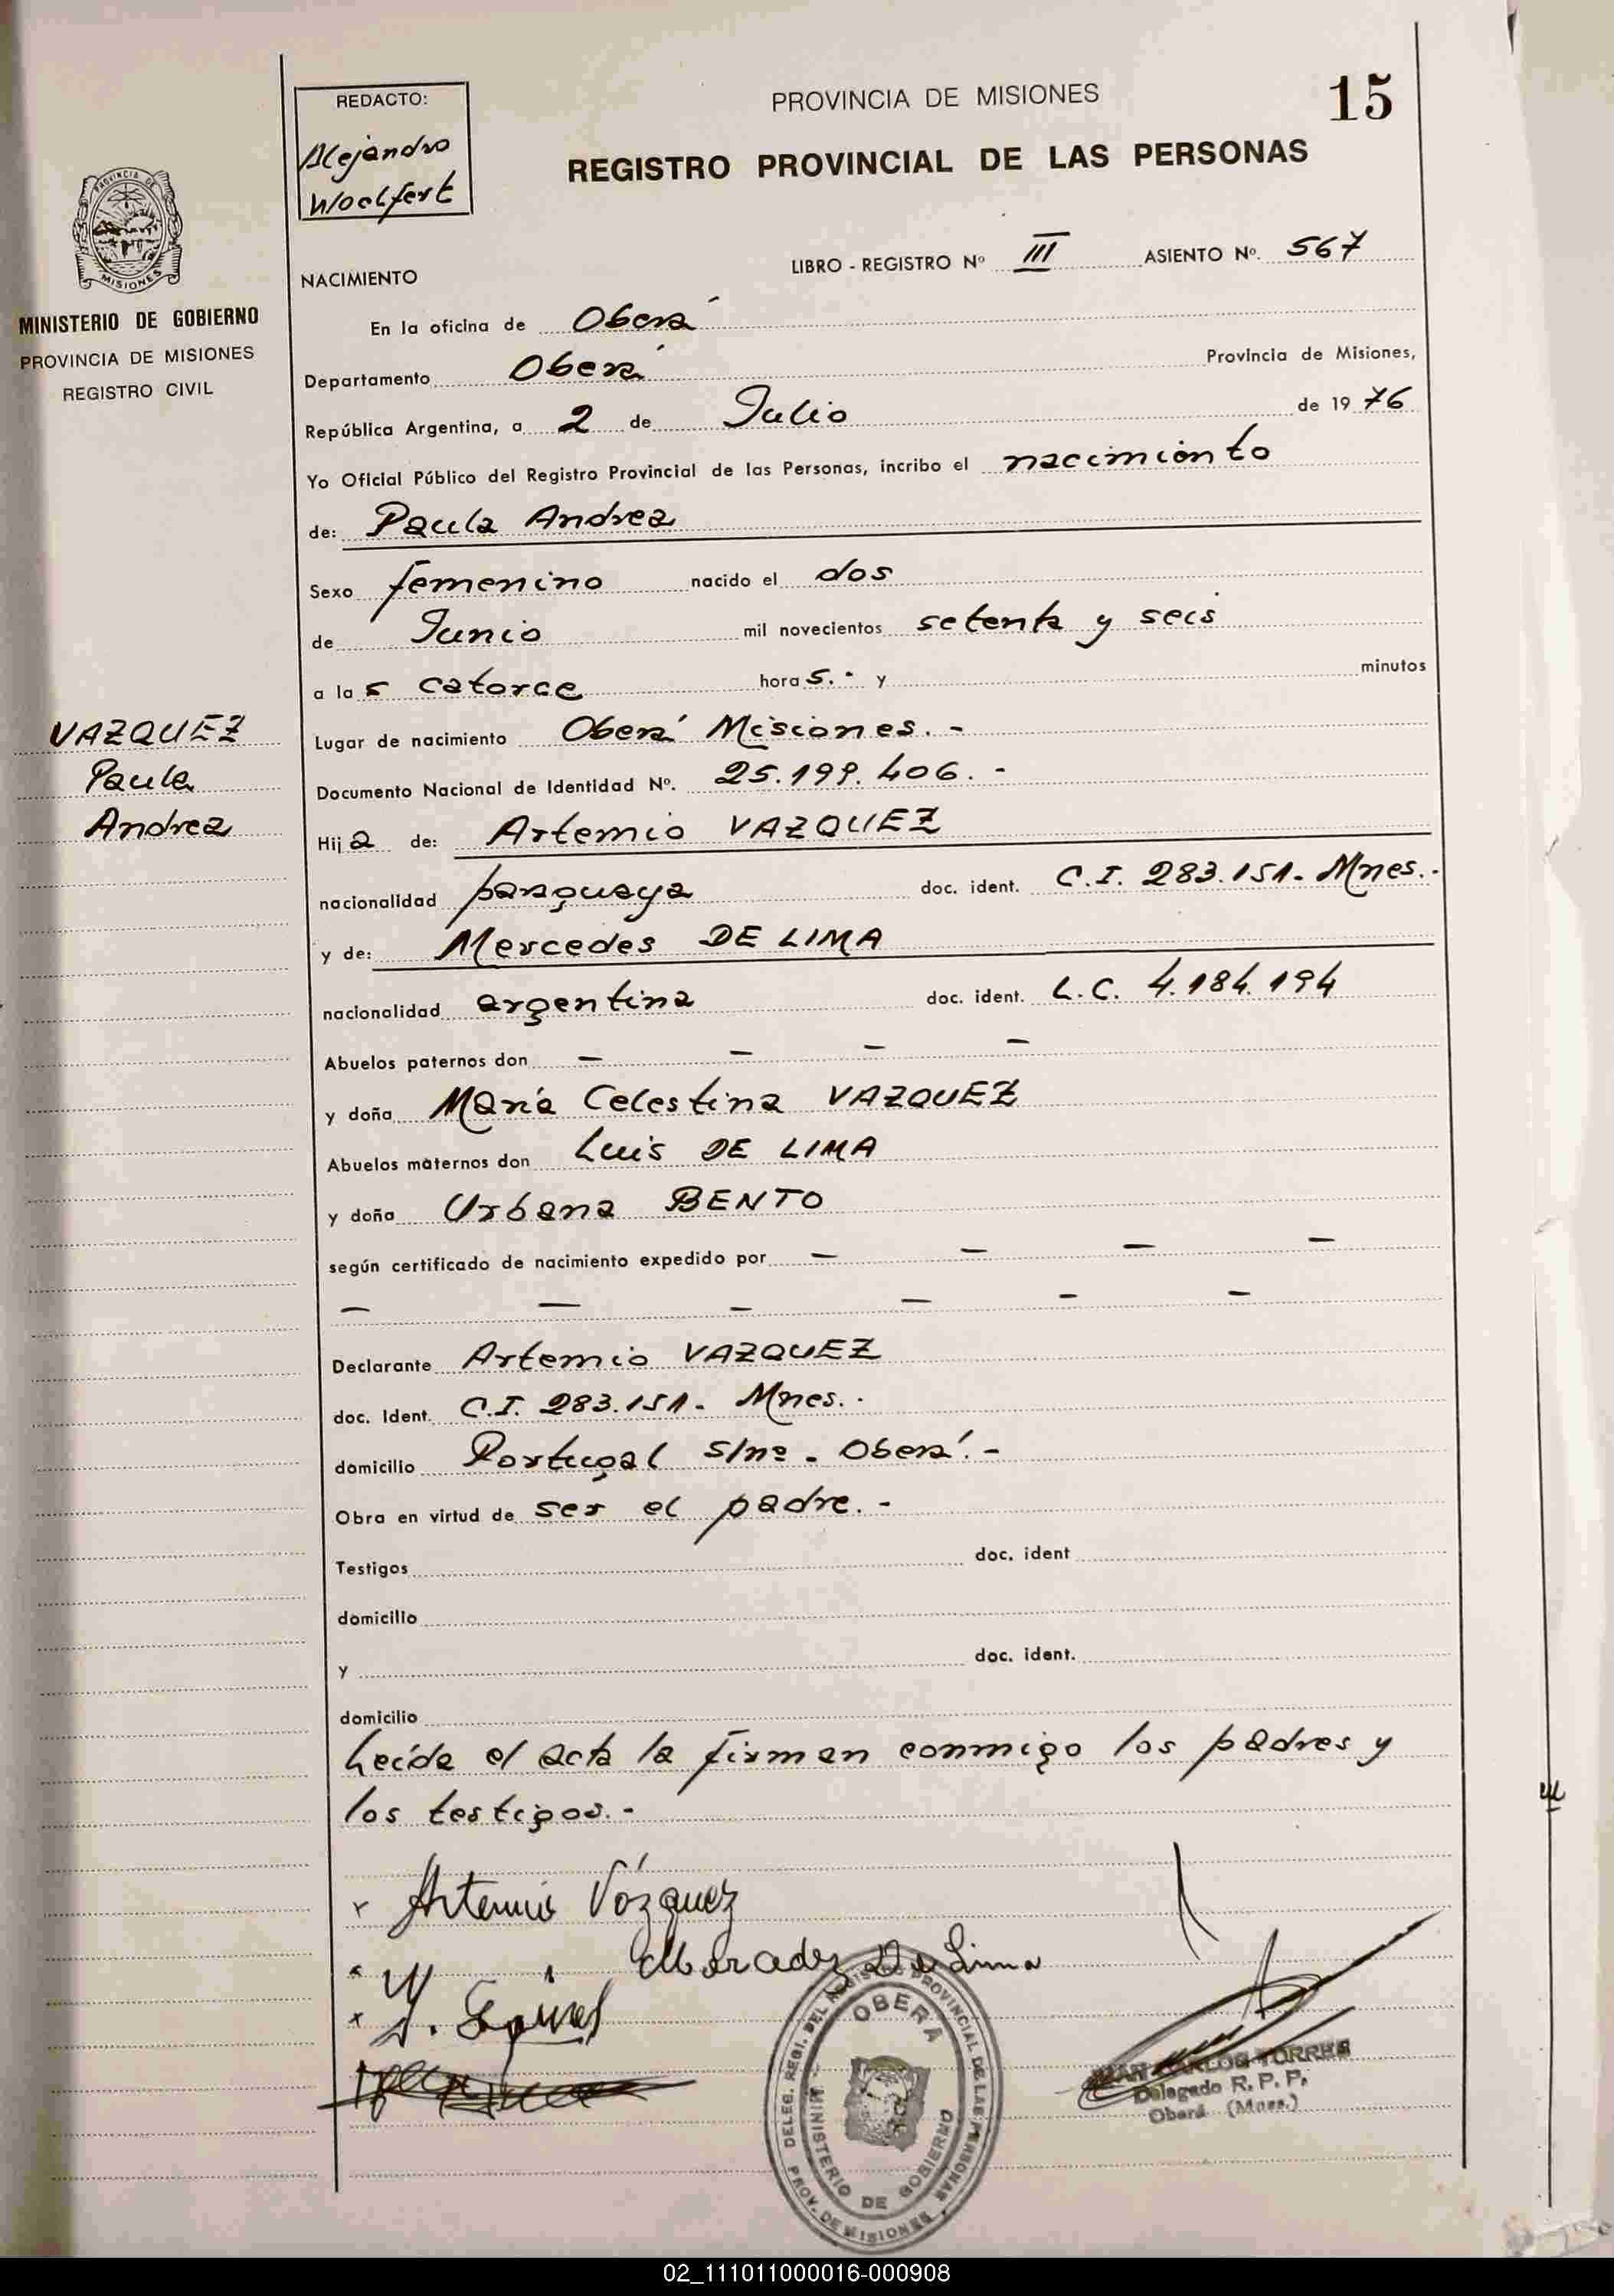 REDACTO:
Alejandro
Woelfert
PROVINCIA DE MISIONES
15
REGISTRO PROVINCIAL DE LAS PERSONAS
PROVINCIA DE
MISIONES
MINISTERIO DE GOBIERNO
PROVINCIA DE MISIONES
REGISTRO CIVIL
NACIMIENTO
LIBRO - REGISTRO Nº III ASIENTO Nº. 567
En la oficina de Oberá
Departamento Oberá Provincia de Misiones,
República Argentina, a 2 de Julio de 19 76
Yo Oficial Público del Registro Provincial de las Personas, incribo el nacimiento
de: Paula Andrea
Sexo femenino nacido el dos
de Junio mil novecientos setenta y seis
a la s catorce hora s.- y minutos
VAZQUEZ
Paula
Andrea
Lugar de nacimiento Oberá Misiones.-
Documento Nacional de Identidad Nº. 25.199.406.-
Hij a de: Artemio VAZQUEZ
nacionalidad paraguaya doc. ident. C.I. 283.151. Mnes.-
y de: Mercedes DE LIMA
nacionalidad argentina doc. ident. L.C. 4.184.194
Abuelos paternos don — — — —
y doña María Celestina VAZQUEZ
Abuelos maternos don Luis DE LIMA
y doña Urbana BENTO
según certificado de nacimiento expedido por — — — —
— — — — — —
Declarante Artemio VAZQUEZ
doc. Ident. C.I. 283.151. Mnes..
domicilio Portugal s/nº. Oberá.-
Obra en virtud de ser el padre.-
Testigos doc. ident
domicilio
y doc. ident.
domicilio
Leída el acta la firman conmigo los padres y
los testigos.-
Artemio Vázquez
De Lima
DELEG. REGI. DEL REGISTRO PROVINCIAL DE LAS PERSONAS
OBERA
MINISTERIO DE GOBIERNO
PROV. DE MISIONES
JUAN CARLOS TORRES
Delegado R. P. P.
Oberá (Mnes.)
02_111011000016-000908